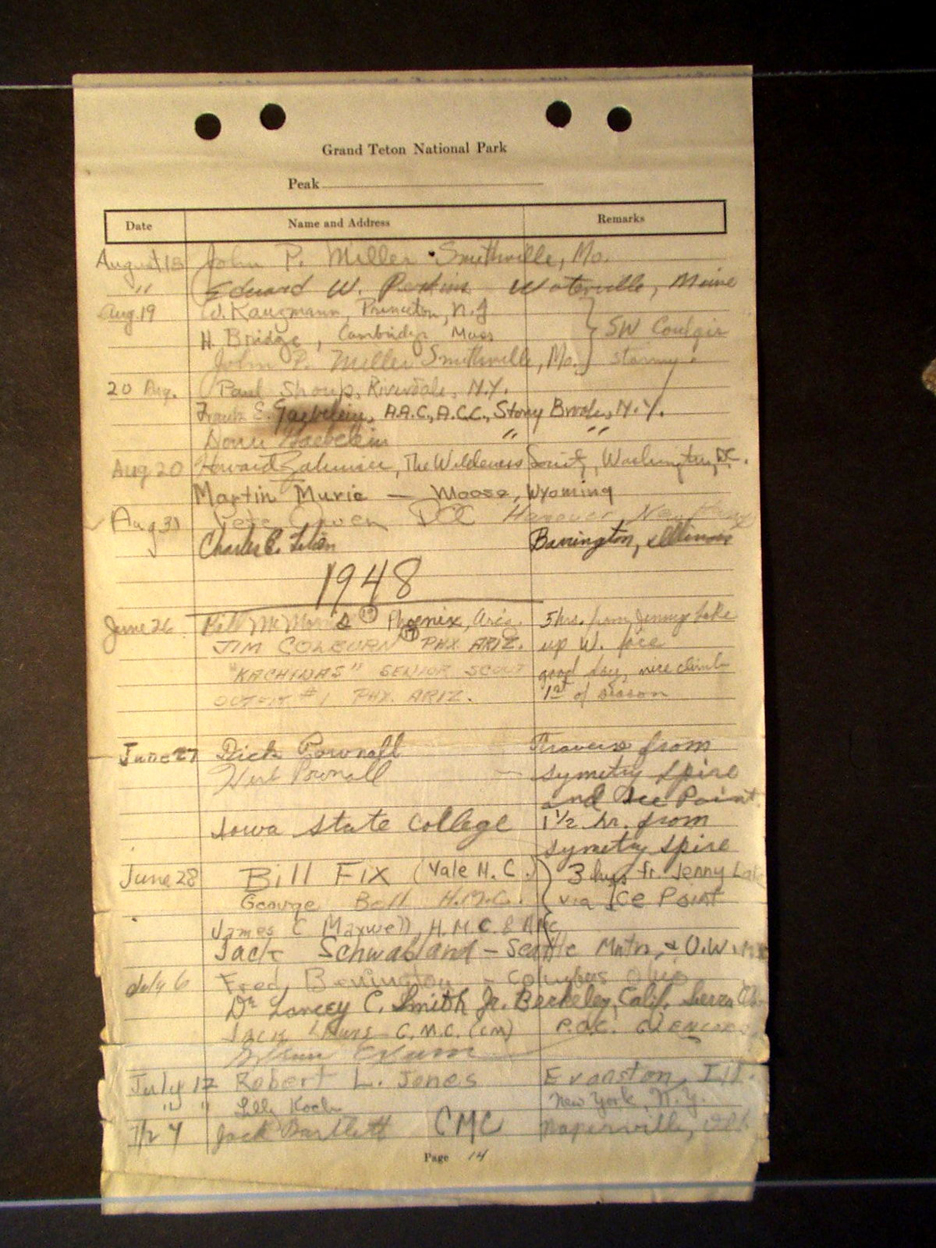 Grand Teton National Park
Peak
Date Name and Address Remarks
August 18 John P. Miller Smithville, Mo.
" Edward W. Perkins Waterville, Maine
Aug. 19 W. Kauzmann, Princeton, N.J
H. Bridge, Cambridge Mass } SW Couloir
John P. Miller Smithville, Mo. stormy.
20 Aug. Paul Shoup, Riverdale, N.Y.
Frank E. Gaebelein, A.A.C., A.C.C., Stony Brook, N.Y.
Gaebelein " "
Aug 20 Howard Zahniser, The Wilderness Society, Washington, D.C.
Martin Murie — Moose, Wyoming
Aug 31 Pete Owen DOC Hanover, New
Charles E. Barrington, Illinois
1948
June 26 Bill Phoenix, Ariz. 5 hrs. from Jenny Lake
JIM COLBURN PHX. ARIZ. up W. face
"KACHINAS" SENIOR SCOUT good day, nice climb
OUTFIT #1 PHX. ARIZ. 1st of season
June 27 Dick Pownall Traverse from
Herb Pownall — symetry spire
and Ice Point
Iowa State College 1 1/2 hr. from
symetry spire
June 28 Bill Fix (Yale M.C.) 3 hrs fr. Jenny Lake
George Bell H.M.C. via Ice Point
James C Maxwell, H.M.C. &
Jack Schwabland – Seattle Mtn. & U.W.
July 6 Fred Benington – Columbus Ohio
De Lancey C. Smith Jr. Berkeley, Calif. Sierra Club
Jack C.M.C. P.O.C. Glencoe
Exum
July 17 Robert L. Jones Evanston, Ill.
" " Lilly Koch New York, N.Y.
7/24 Jack Bartlett CMC Naperville, Ill.
Page 14